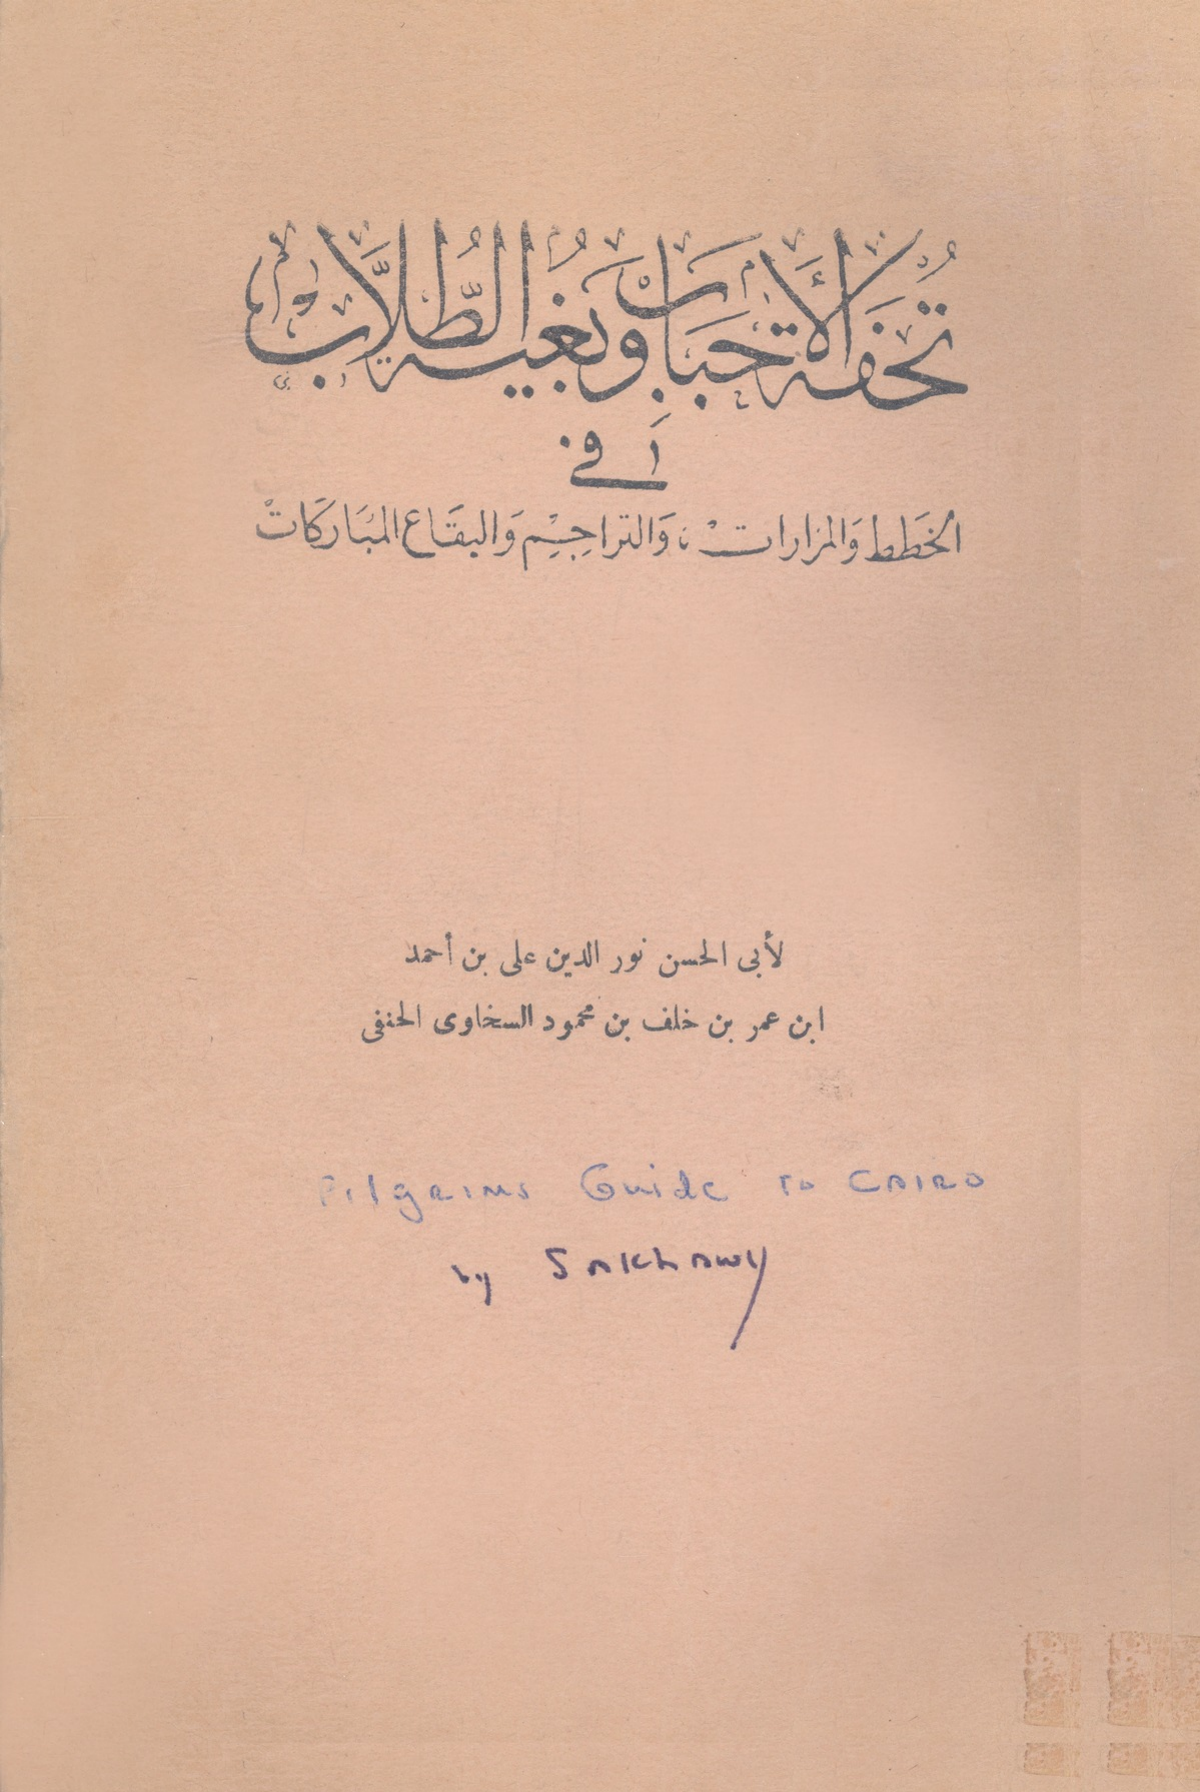 تحفة الأحباب وبغية الطلاب
في
الخطط والمزارات، والتراجم والبقاع المباركات
لأبى الحسن نور الدين على بن أحمد
ابن عمر بن خلف بن محمود السخاوى الحنفى
Pilgrims Guide to CAIRO
by SAKHAWY